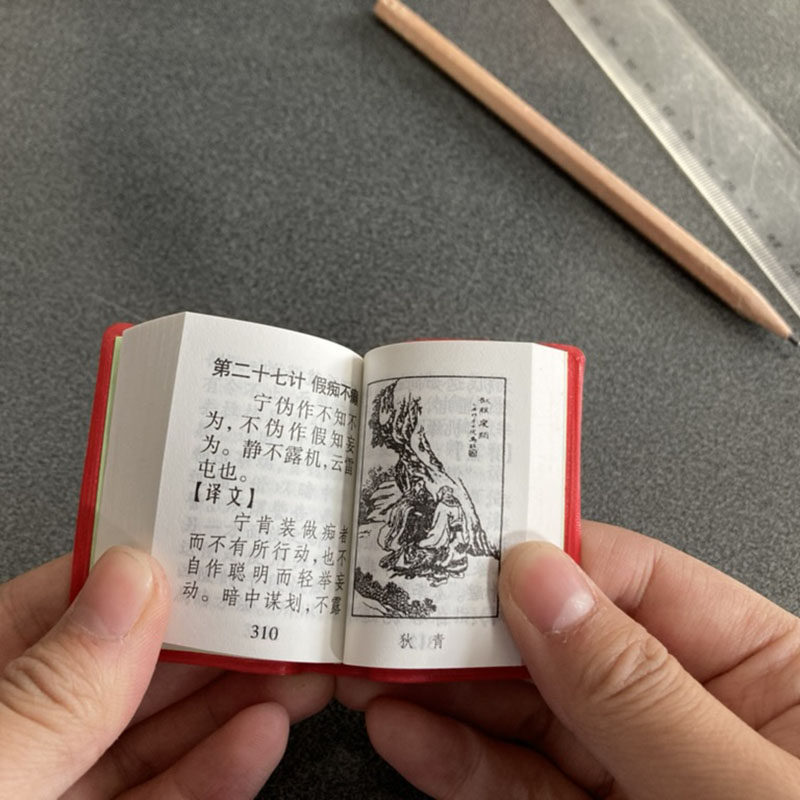 第二十七计 假痴不癫
宁伪作不知不
为，不伪作假知妄
为。静不露机，云雷
屯也。
【译文】
宁肯装做痴者
而不有所行动，也不
自作聪明而轻举妄
动。暗中谋划，不露
310
狄青